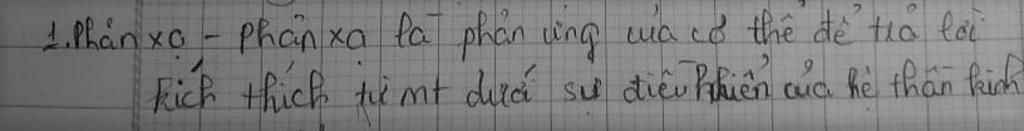 1. Phản xạ - Phản xạ là phản ứng của cơ thể để trả lời
kích thích từ mt dưới sự điều khiển của hệ thần kinh